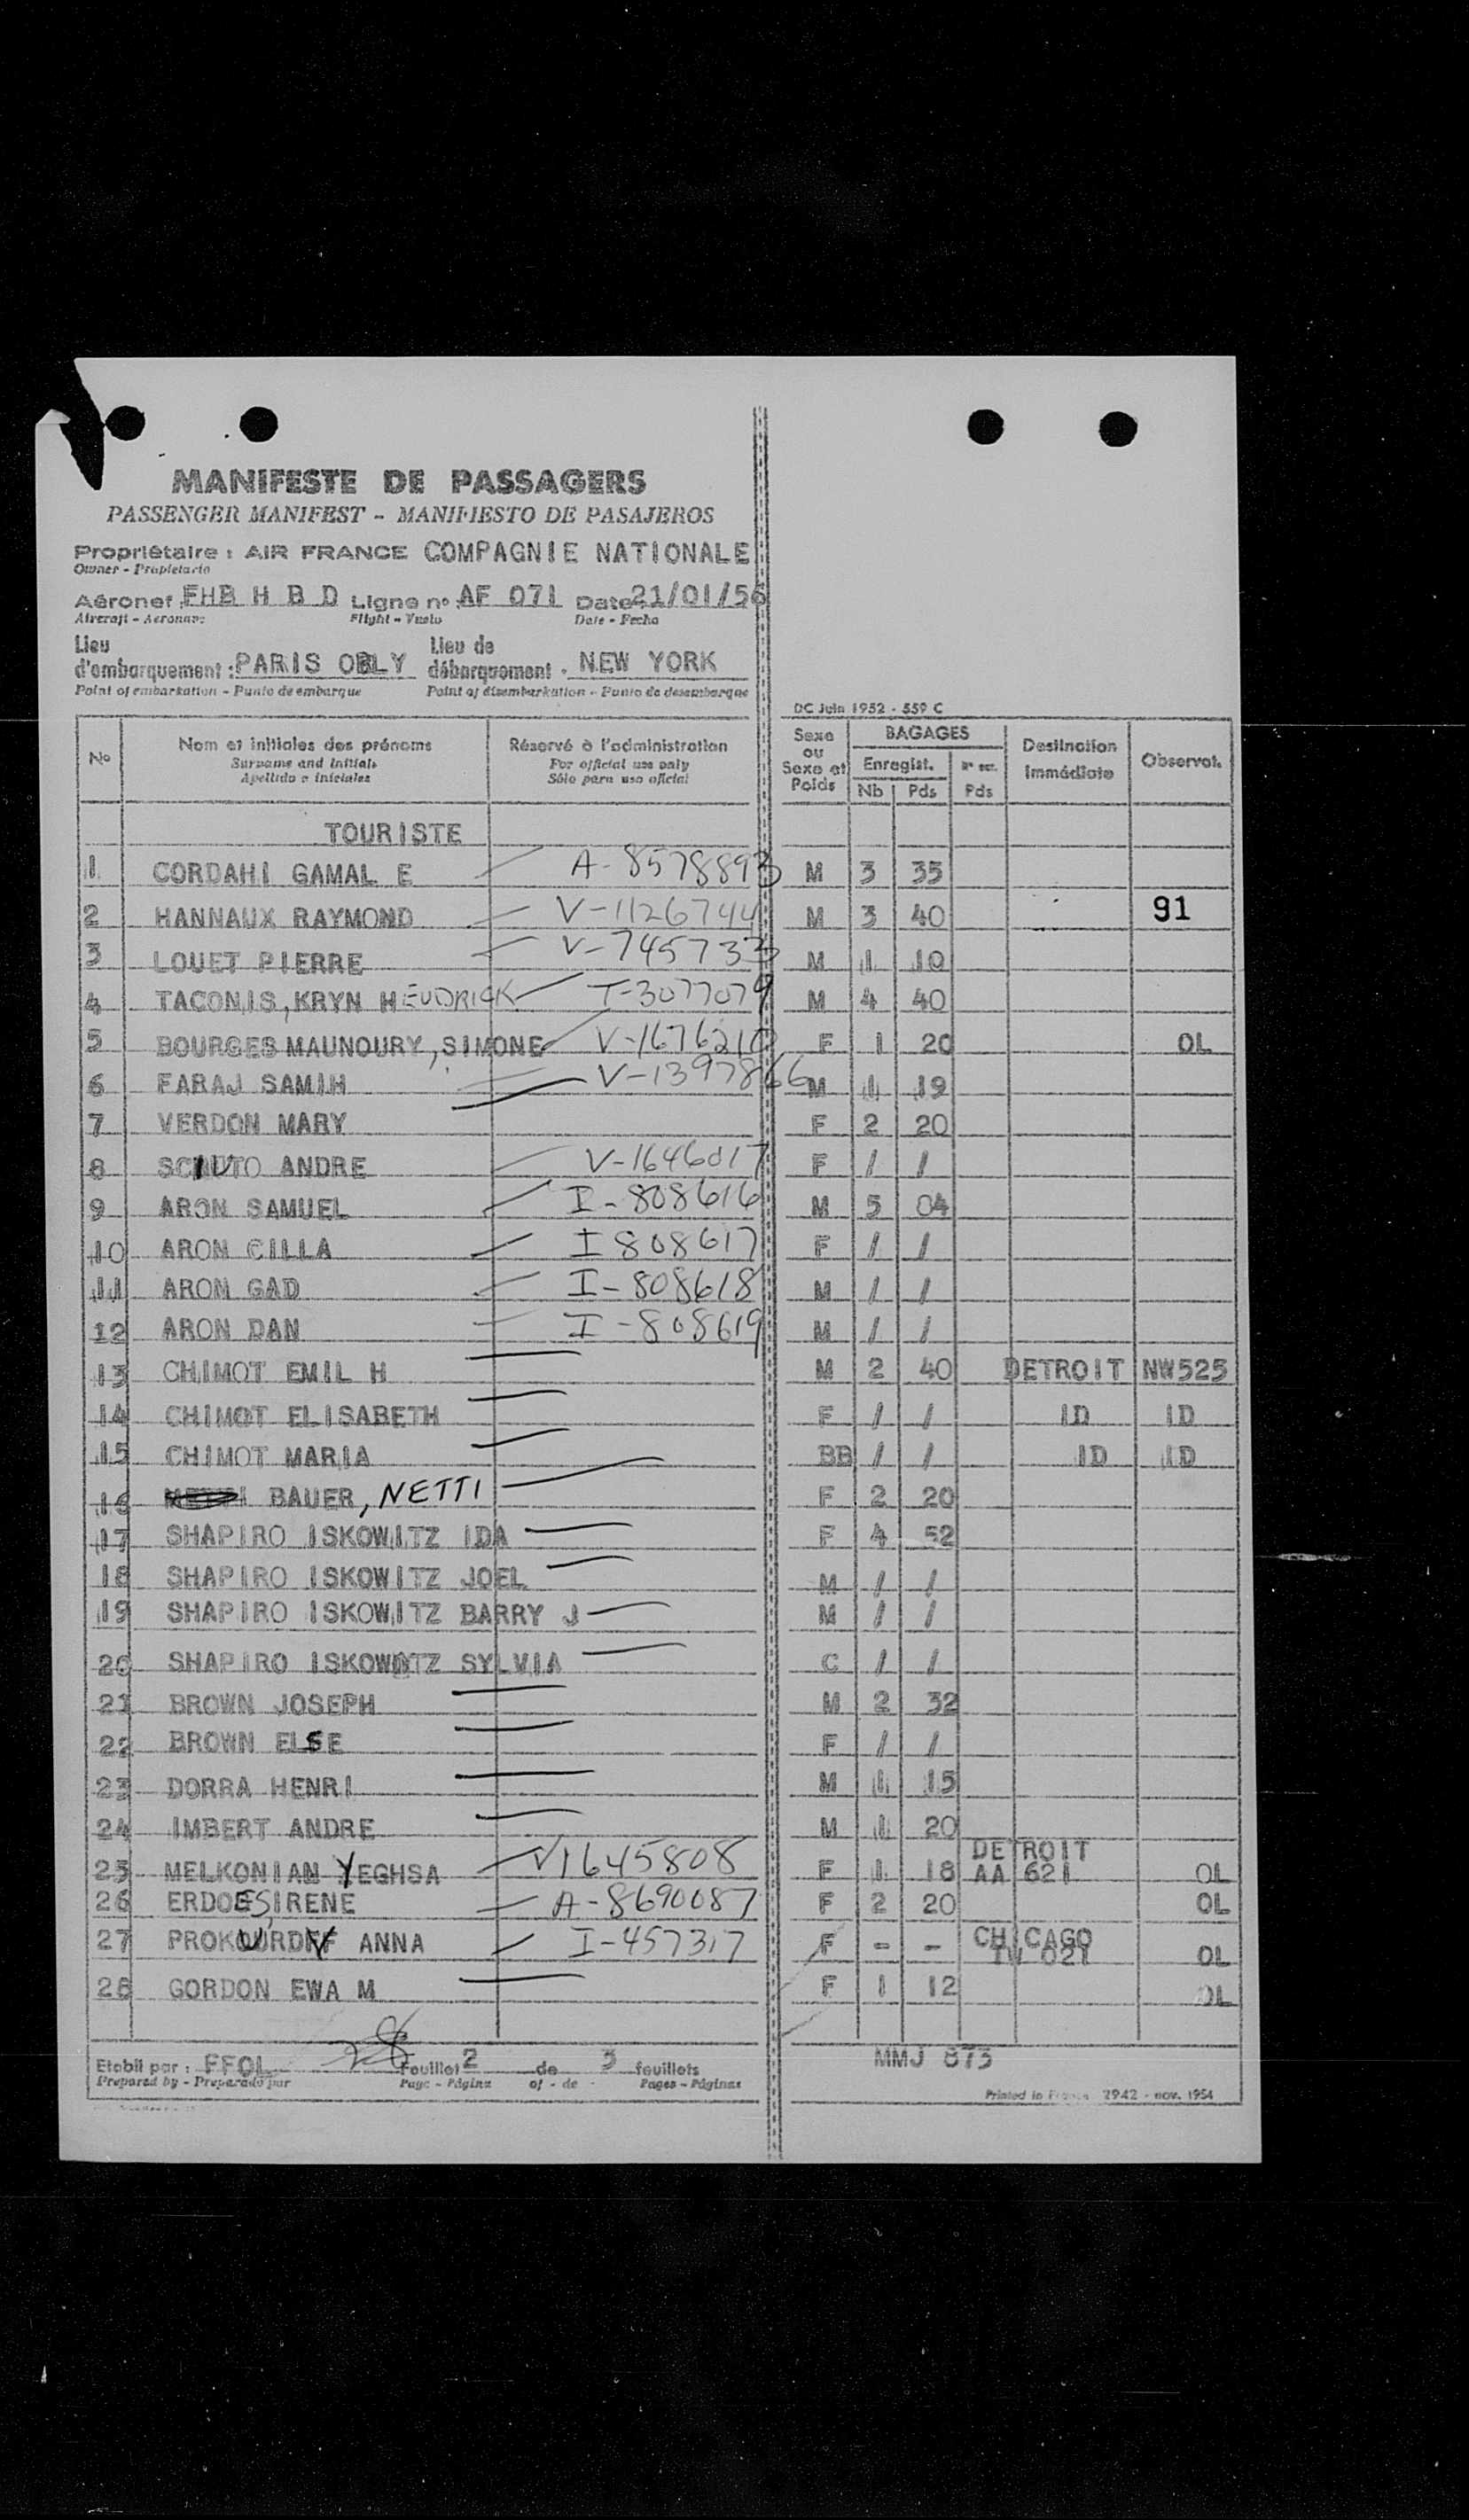 MANIFESTE DE PASSAGERS
PASSENGER MANIFEST - MANIFIESTO DE PASAJEROS
Propriétaire : AIR FRANCE COMPAGNIE NATIONALE
Owner - Propietario
Aéronef : FHB H B D Ligne n° : AF 071 Date 21/01/56
Aircraft - Aeronave Flight - Vuelo Date - Fecha
Lieu d'embarquement : PARIS ORLY Lieu de débarquement : NEW YORK
Point of embarkation - Punto de embarque Point of disembarkation - Punto de desembarque
DC Juin 1952 - 559 C
No Nom et initiales des prénoms Réservé à l'administration Sexe ou Sexe et Poids BAGAGES Destination Immédiate Observat.
Surname and initials For official use only Enregist.
Apellido e iniciales Sólo para uso oficial Nb Pds Pds
TOURISTE
1 CORDAHI GAMAL E A-8578893 M 3 35
2 HANNAUX RAYMOND V-1126744 M 3 40 91
3 LOUET PIERRE V-745733 M 1 10
4 TACONIS, KRYN HEUDRICK T-3077079 M 4 40
5 BOURGES MAUNOURY, SIMONE V-1676210 F 1 20 OL
6 FARAJ SAMIH V-1397866 M 1 19
7 VERDON MARY F 2 20
8 SCIUTO ANDRE V-1646017 F / /
9 ARON SAMUEL I-808616 M 5 84
10 ARON CILLA I 808617 F / /
11 ARON GAD I-808618 M / /
12 ARON DAN I-808619 M / /
13 CHIMOT EMIL H M 2 40 DETROIT NW525
14 CHIMOT ELISABETH F / / ID ID
15 CHIMOT MARIA BB / / ID ID
16 BAUER, NETTI F 2 20
17 SHAPIRO ISKOWITZ IDA F 4 52
18 SHAPIRO ISKOWITZ JOEL M / /
19 SHAPIRO ISKOWITZ BARRY J M / /
20 SHAPIRO ISKOWITZ SYLVIA C / /
21 BROWN JOSEPH M 2 32
22 BROWN ELSE F / /
23 DORRA HENRI M 1 15
24 IMBERT ANDRE M 1 20
25 MELKONIAN YEGHSA V1645808 F 1 18 DETROIT AA 621 OL
26 ERDOES, IRENE A-8690087 F 2 20 OL
27 PROKOUROFF ANNA I-457317 F - - CHICAGO TW 021 OL
28 GORDON EWA M F 1 12 OL
28
Etabli par : FFOL Feuillet 2 de 3 feuillets MMJ 873
Prepared by - Preparado por Page - Página of - de Pages - Páginas
Printed in France 2942 - nov. 1954